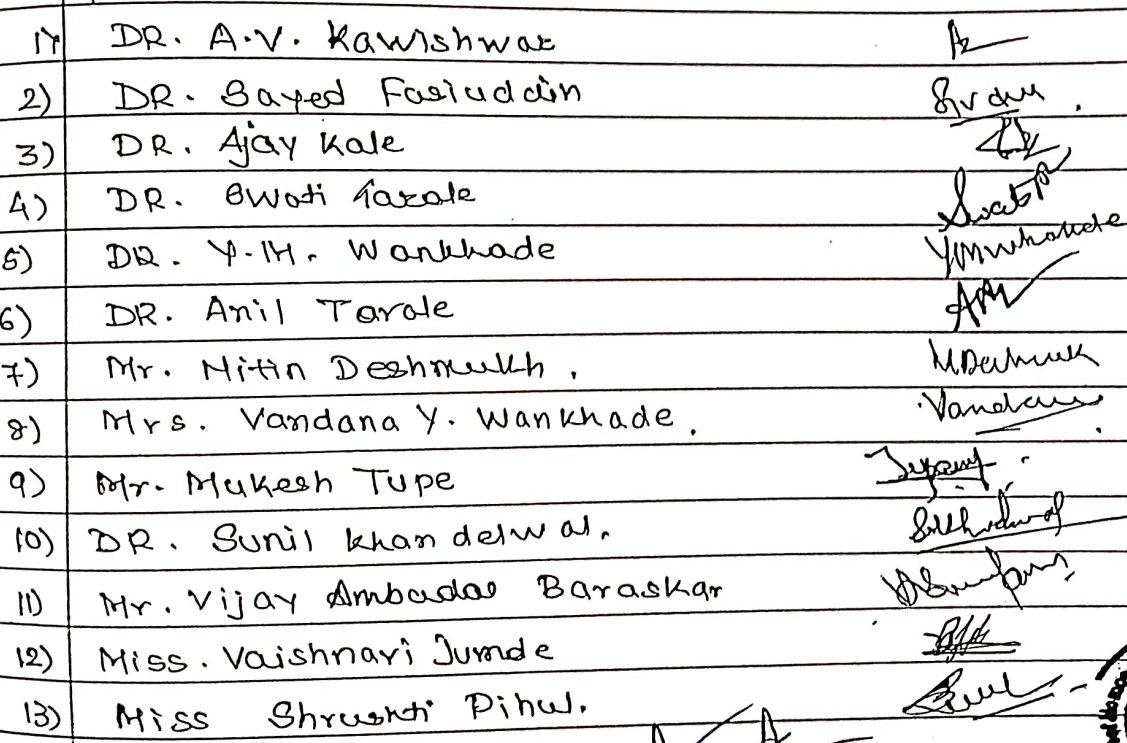 1) DR. A.V. Kawishwar
2) DR. Sayed Fasiuddin
3) DR. Ajay Kale
4) DR. Swati Tarale Swati
5) DR. Y.M. Wankhade YMWankhade
6) DR. Anil Tarale
7) Mr. Nitin Deshmukh. NDeshmukh
8) Mrs. Vandana Y. Wankhade. Vandana
9) Mr. Mukesh Tupe
10) DR. Sunil Khandelwal.
11) Mr. Vijay Ambadas Baraskar
12) Miss. Vaishnavi Jumde
13) Miss Shrushti